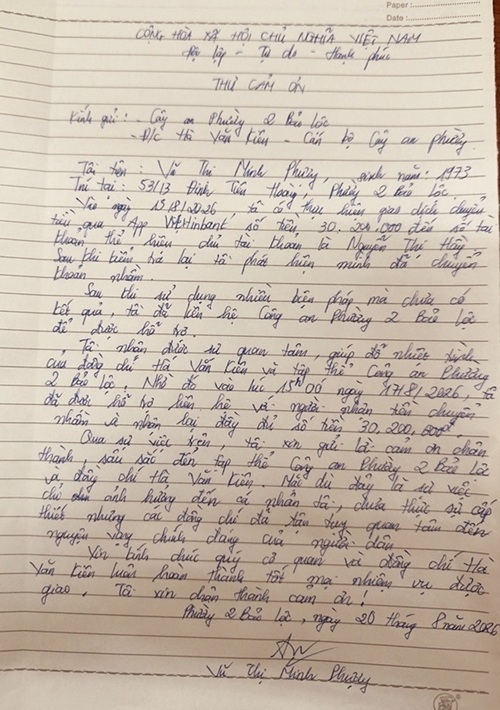 Paper :
Date :
CỘNG HÒA XÃ HỘI CHỦ NGHĨA VIỆT NAM
Độc lập - Tự do - Hạnh phúc
THƯ CẢM ƠN
Kính gửi : - Công an Phường 2 Bảo Lộc
- Đ/c Hà Văn Kiên - Cán bộ Công an phường.
Tôi tên : Vũ Thị Minh Phượng, sinh năm : 1973
Trú tại : 53/13 Đinh Tiên Hoàng, Phường 2 Bảo Lộc
Vào ngày 15/8/2026 tôi có thực hiện giao dịch chuyển
tiền qua App Viettinbank số tiền 30.200.000 đến số tài
khoản thể hiện chủ tài khoản là Nguyễn Thị Hồng.
Sau khi kiểm tra lại tôi phát hiện mình đã chuyển
khoản nhầm.
Sau khi sử dụng nhiều biện pháp mà chưa có
kết quả, tôi đã liên hệ Công an Phường 2 Bảo Lộc
để được hỗ trợ.
Tôi nhận được sự quan tâm, giúp đỡ nhiệt tình
của đồng chí Hà Văn Kiên và tập thể Công an Phường
2 Bảo Lộc. Nhờ đó vào lúc 15h00 ngày 17/8/2026, tôi
đã được hỗ trợ liên hệ với người nhận tiền chuyển
nhầm và nhận lại đầy đủ số tiền 30.200.000đ
Qua sự việc trên, tôi xin gửi lời cảm ơn chân
thành, sâu sắc đến tập thể Công an Phường 2 Bảo Lộc
và đồng chí Hà Văn Kiên. Mặc dù đây là sự việc
chỉ ảnh hưởng đến cá nhân tôi, chưa thực sự cấp
thiết nhưng các đồng chí đã tận tụy quan tâm đến
nguyện vọng chính đáng của người dân.
Xin kính chúc quý cơ quan và đồng chí Hà
Văn Kiên luôn hoàn thành tốt mọi nhiệm vụ được
giao. Tôi xin chân thành cảm ơn !
Phường 2 Bảo Lộc, ngày 20 tháng 8 năm 2026
Vũ Thị Minh Phượng